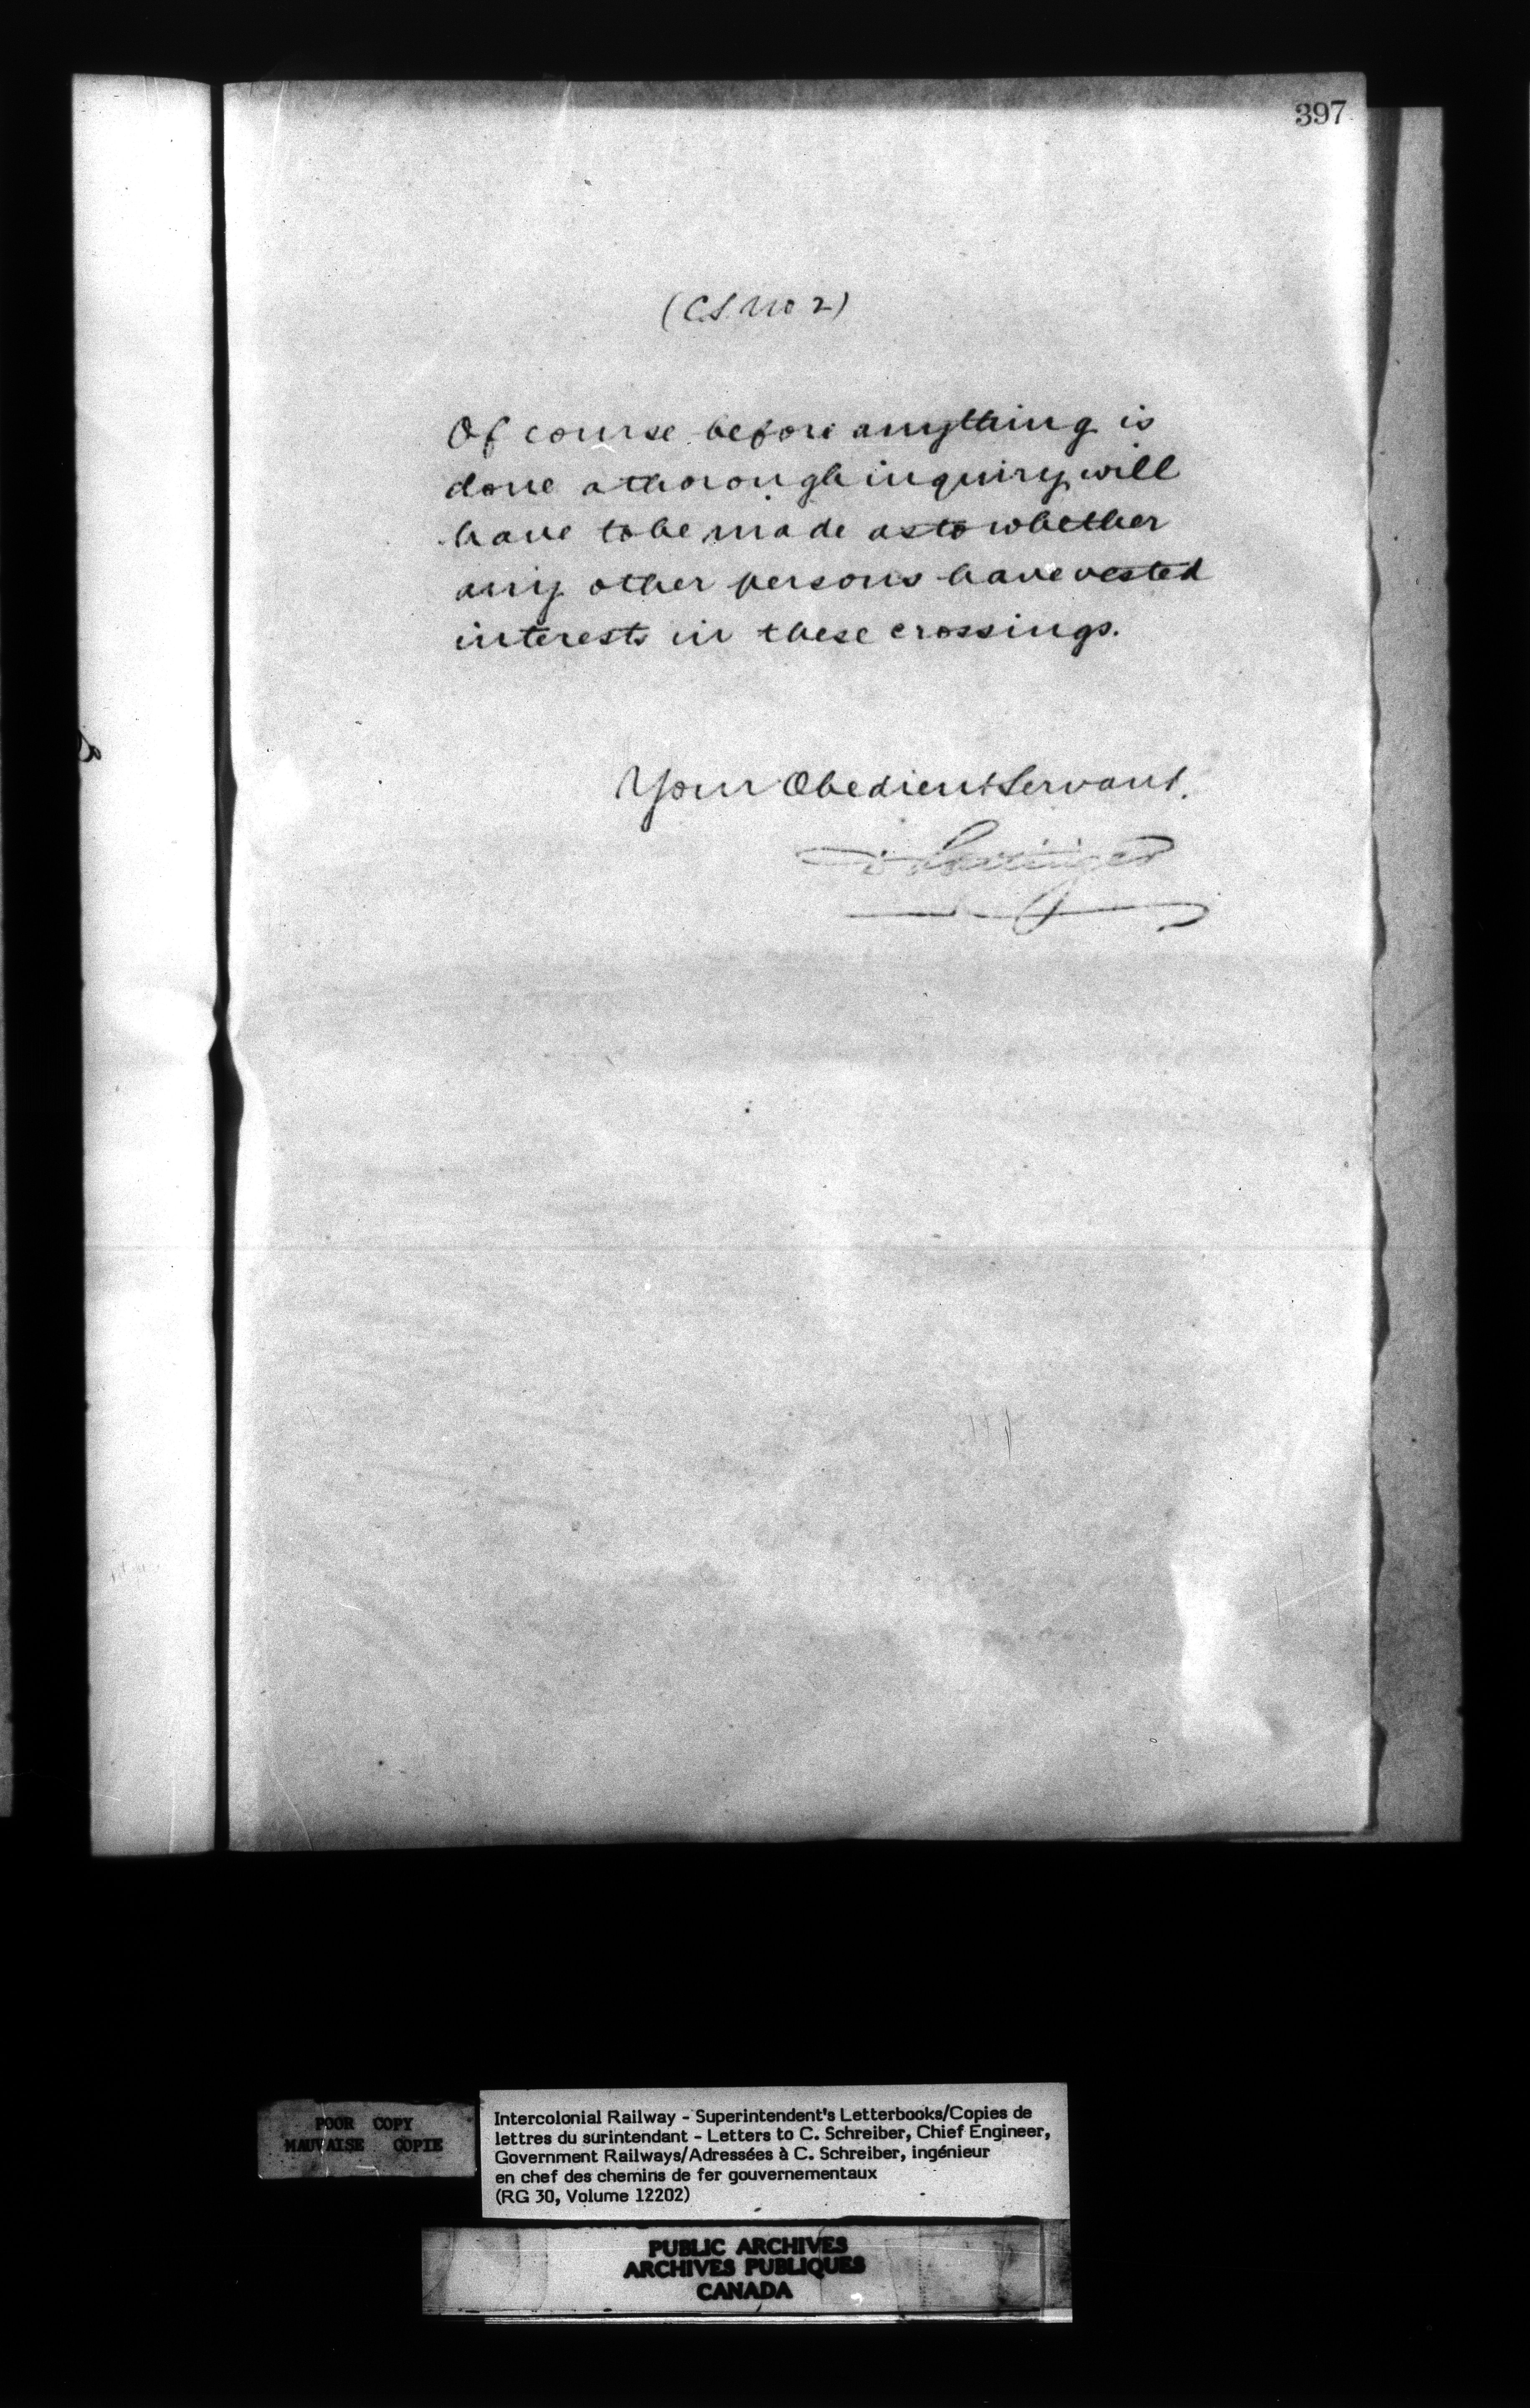 397
(C.S. No 2)
Of course before anything is
done a thorough inquiry will
have to be made as to whether
any other persons have vested
interests in these crossings.
Your Obedient Servant.
D Pottinger
POOR COPY
MAUVAISE COPIE
Intercolonial Railway - Superintendent's Letterbooks/Copies de
lettres du surintendant - Letters to C. Schreiber, Chief Engineer,
Government Railways/Adressées à C. Schreiber, ingénieur
en chef des chemins de fer gouvernementaux
(RG 30, Volume 12202)
PUBLIC ARCHIVES
ARCHIVES PUBLIQUES
CANADA